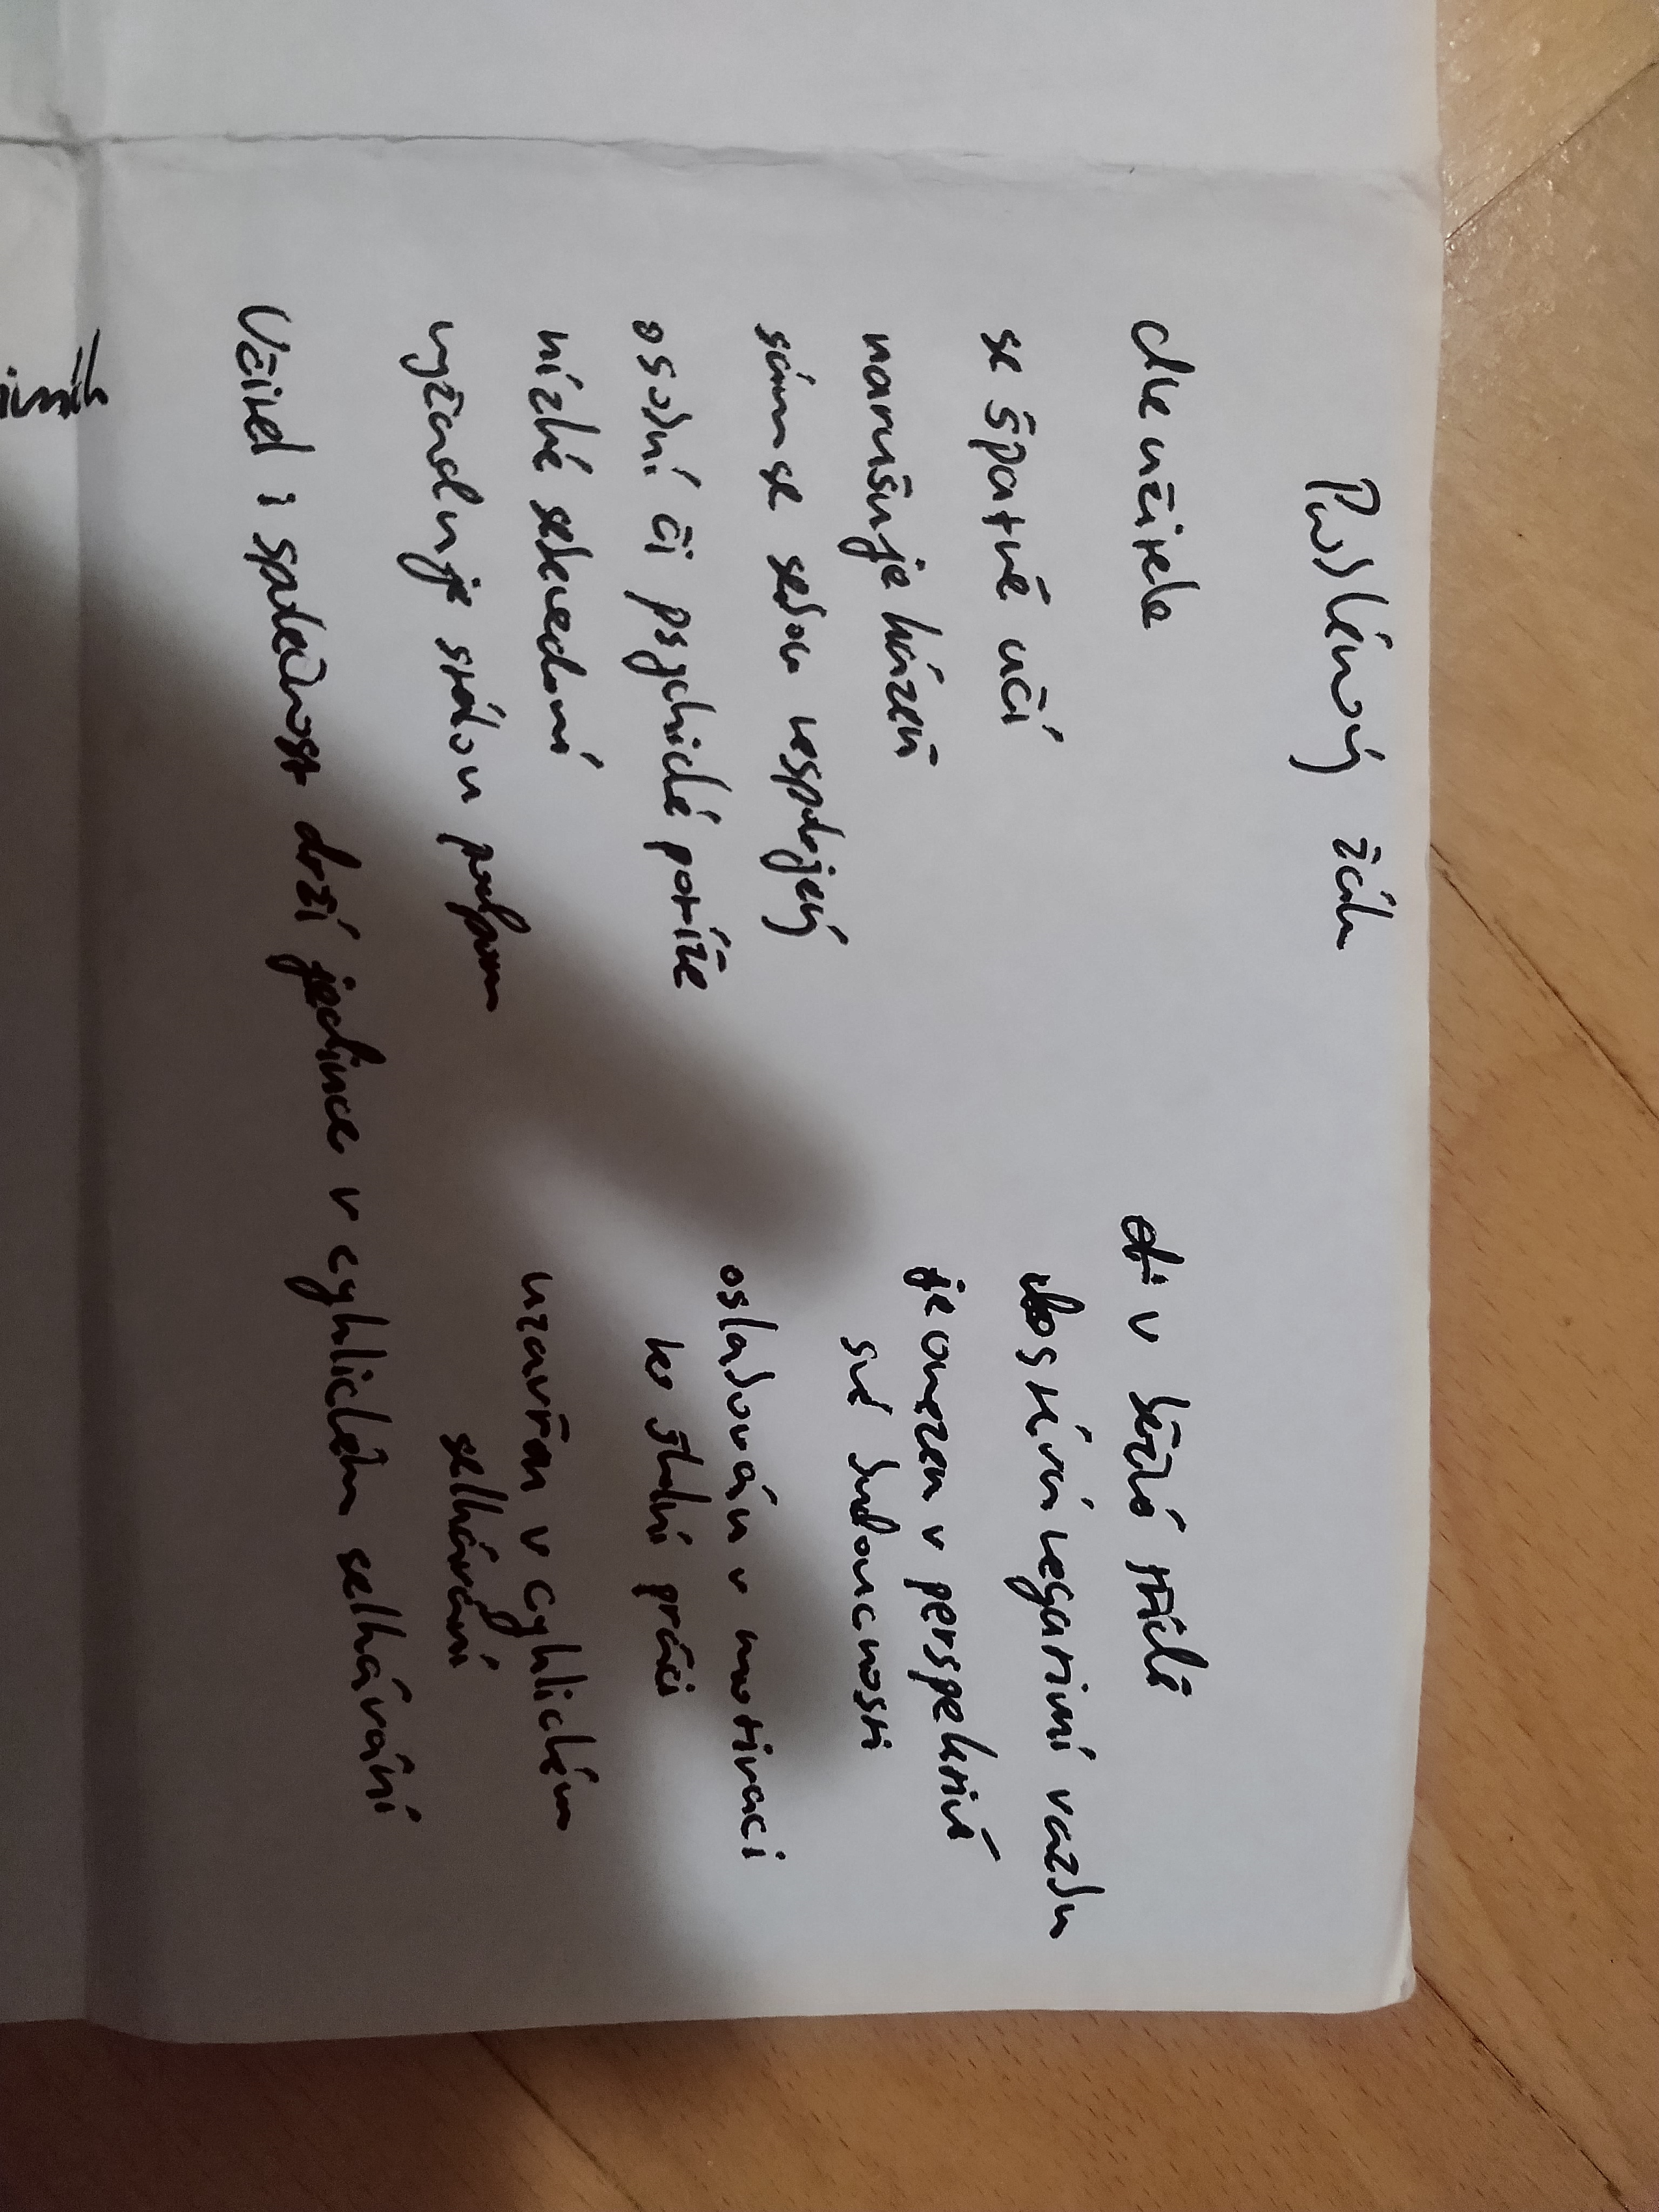 Problémový žák
dle učitele
se špatně učí
narušuje kázeň
sám se sebou nespokojený
osobní či psychické potíže
nízké sebevedomí
vyžaduje stálou
v běžné třídě
dostává negativní vazbu
je omezen v perspektivě
své budoucnosti
oslabován v motivaci
ke školní práci
uzavřen v cyklickém
selhávání
Učitel i společnost drží jedince v cyklickém selhávání